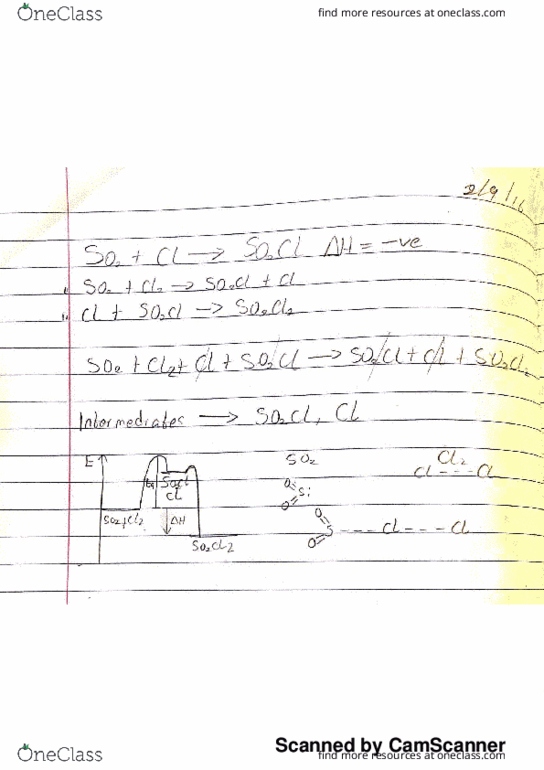 OneClass
find more resources at oneclass.com
2/9/16
SO₂ + Cl → SO₂Cl ΔH = -ve
SO₂ + Cl₂ → SO₂Cl + Cl
Cl + SO₂Cl → SO₂Cl₂
SO₂ + Cl₂ + Cl + SO₂Cl → SO₂Cl + Cl + SO₂Cl₂
Intermediates → SO₂Cl, Cl
E
SO₂Cl
Cl
SO₂+Cl₂
ΔH
SO₂Cl₂
SO₂
O=S:
O
Cl₂
Cl---Cl
O
S---Cl---Cl
O
Scanned by CamScanner
OneClass
find more resources at oneclass.com